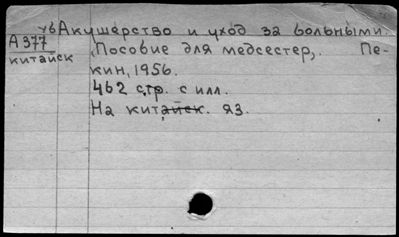 Акушерство и уход за больными.
А377
китайск
Пособие для медсестер, Пе-
кин, 1956.
462 стр. с илл.
На китайск. яз.